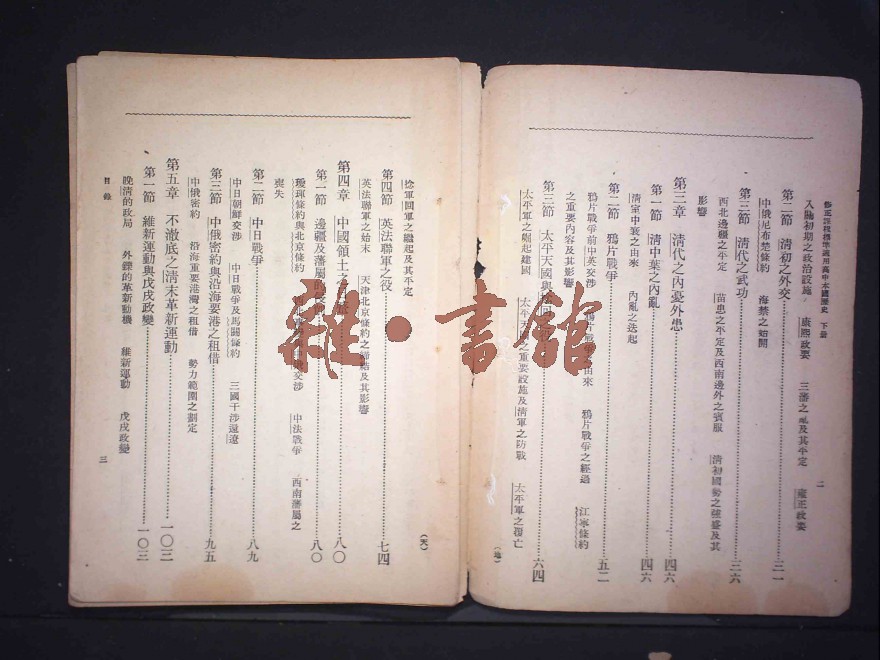 修正課程標準適用高中本國歷史 下册
二
入關初期之政治設施 康熙政要 三藩之亂及其平定 雍正政要
第二節 清初之外交 三一
中俄尼布楚條約 海禁之始開
第三節 清代之武功 三六
西北邊疆之平定 苗患之平定及西南邊外之賓服 清初國勢之强盛及其
影響
第三章 清代之內憂外患 四六
第一節 清中葉之內亂 四六
清室中衰之由來 內亂之迭起
第二節 鴉片戰爭 五二
鴉片戰爭前中英交涉 鴉片戰爭之由來 鴉片戰爭之經過 江寧條約
之重要內容及其影響
第三節 太平天國與捻回 六四
太平軍之崛起建國 太平天國之重要設施及清軍之防戰 太平軍之覆亡
(地)
捻軍回軍之繼起及其平定
第四節 英法聯軍之役 七四
英法聯軍之始末 天津北京條約之締結及其影響
第四章 中國領土之 八〇
第一節 邊疆及藩屬的 八〇
璦琿條約與北京條約 西北 交涉 中法戰爭 西南藩屬之
喪失
第二節 中日戰爭 八九
中日朝鮮交涉 中日戰爭及馬關條約 三國干涉還遼
第三節 中俄密約與沿海要港之租借 九五
中俄密約 沿海重要港灣之租借 勢力範圍之劃定
第五章 不澈底之清末革新運動 一〇三
第一節 維新運動與戊戌政變 一〇三
晚清的政局 外鑠的革新動機 維新運動 戊戌政變
目錄
三
(天)
雜·書館